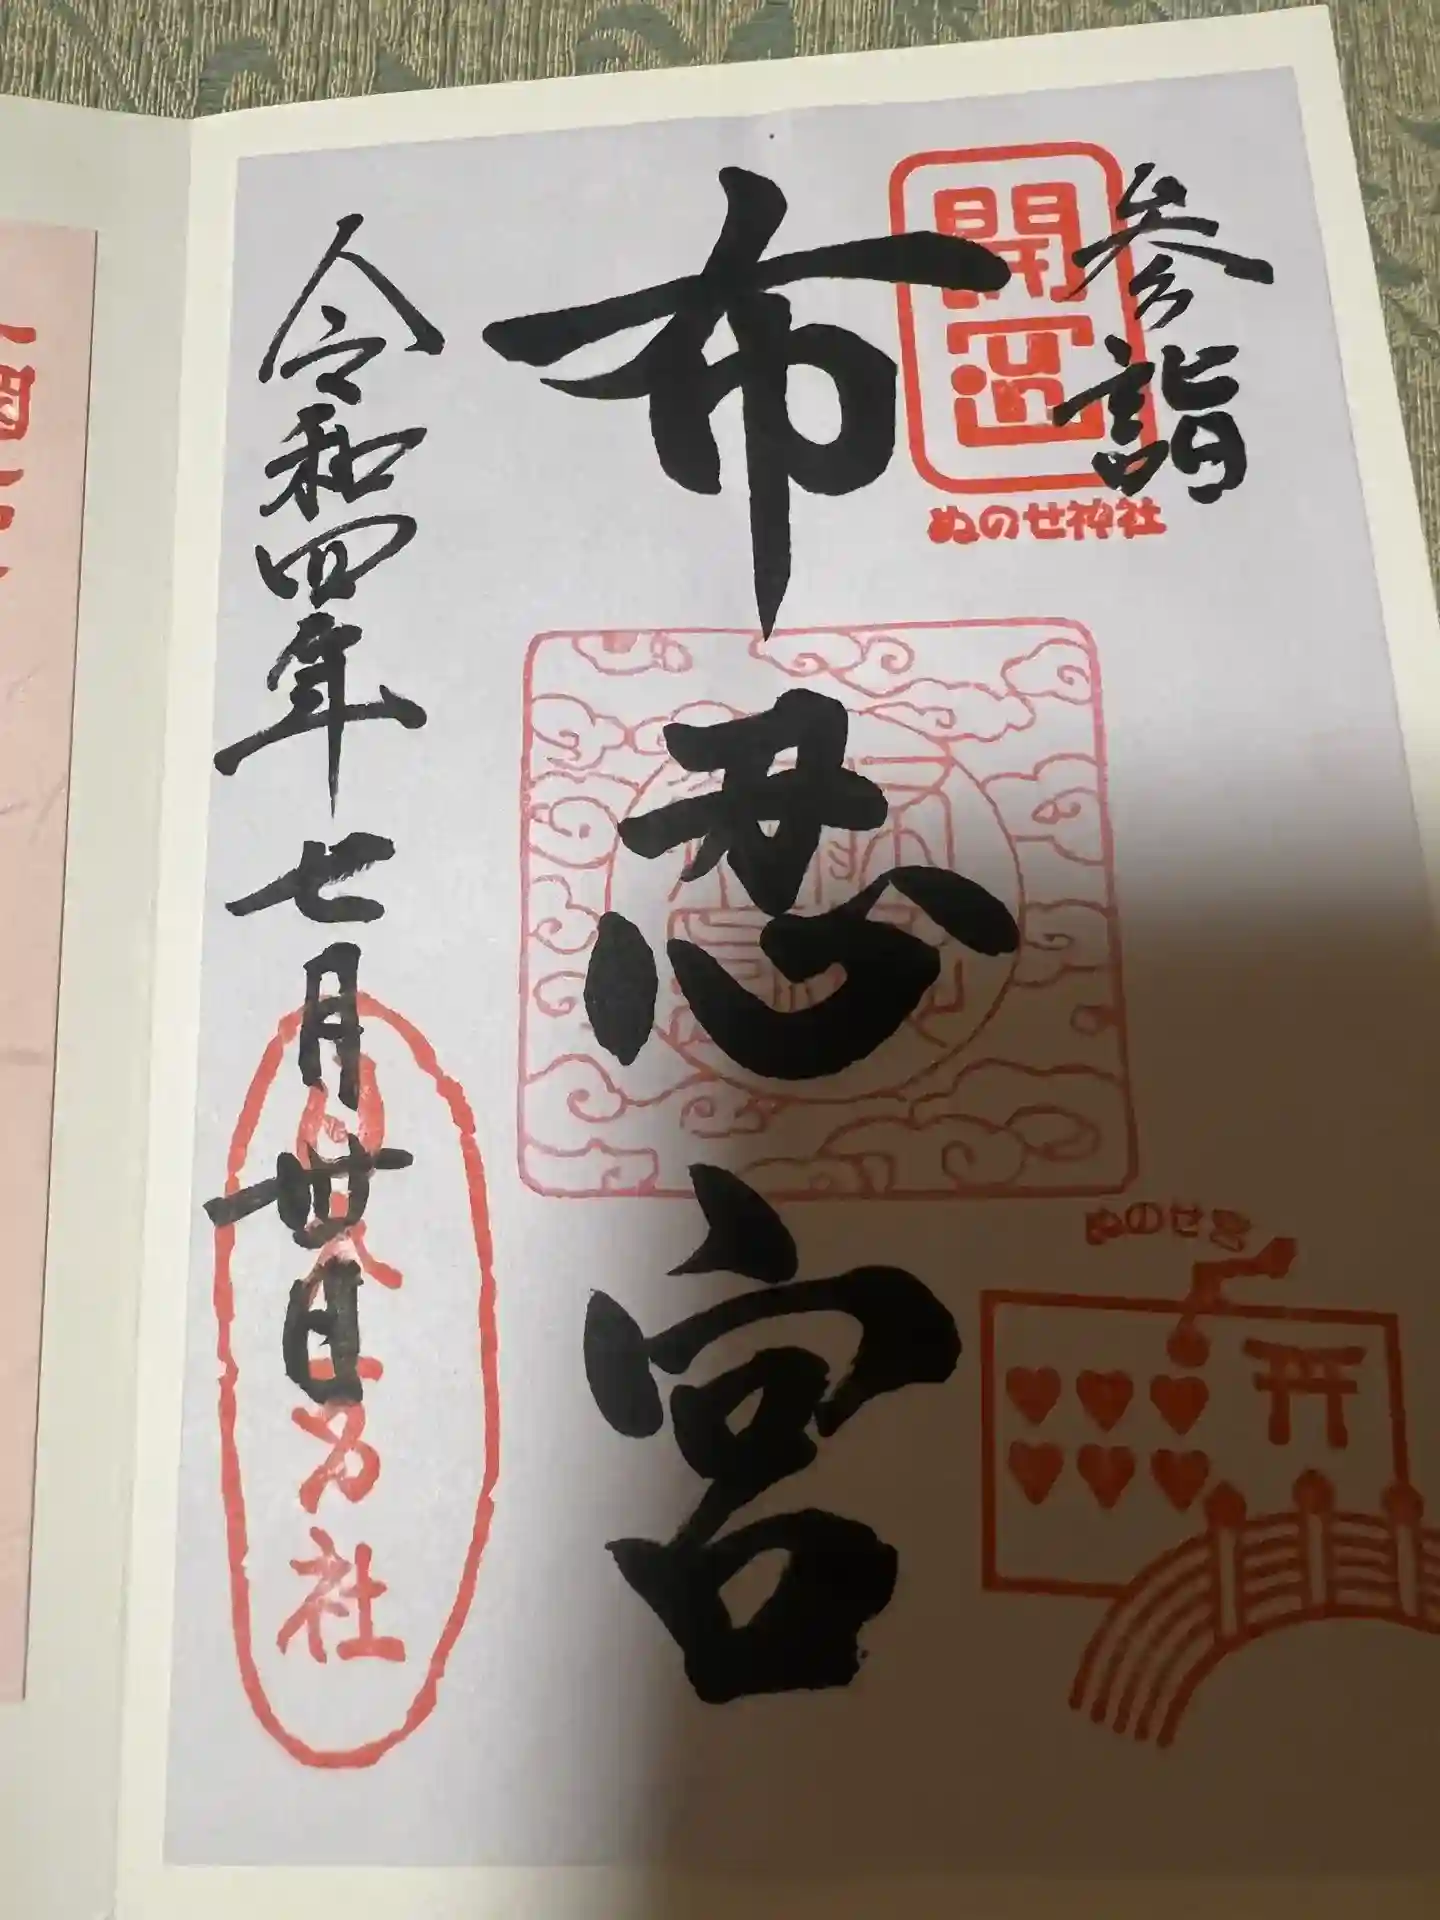 参詣
開運
ぬのせ神社
布忍宮
ぬのせ宮
令和四年七月卅日